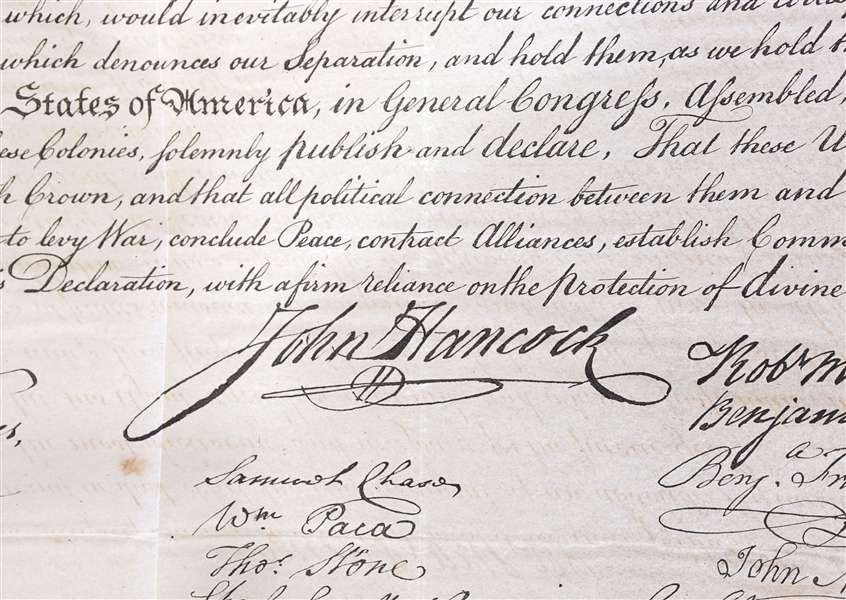 which, would inevitably interrupt our connections and
which denounces our Separation, and hold them, as we hold
States of America, in General Congress, Assembled,
Colonies, solemnly publish and declare, That these U
Crown, and that all political connection between them and
to levy War, conclude Peace, contract Alliances, establish Comm
Declaration, with a firm reliance on the protection of divine
John Hancock
Robt M
Benjam
Samuel Chase
Benja. Fr
Wm Paca
Thos. Stone
John